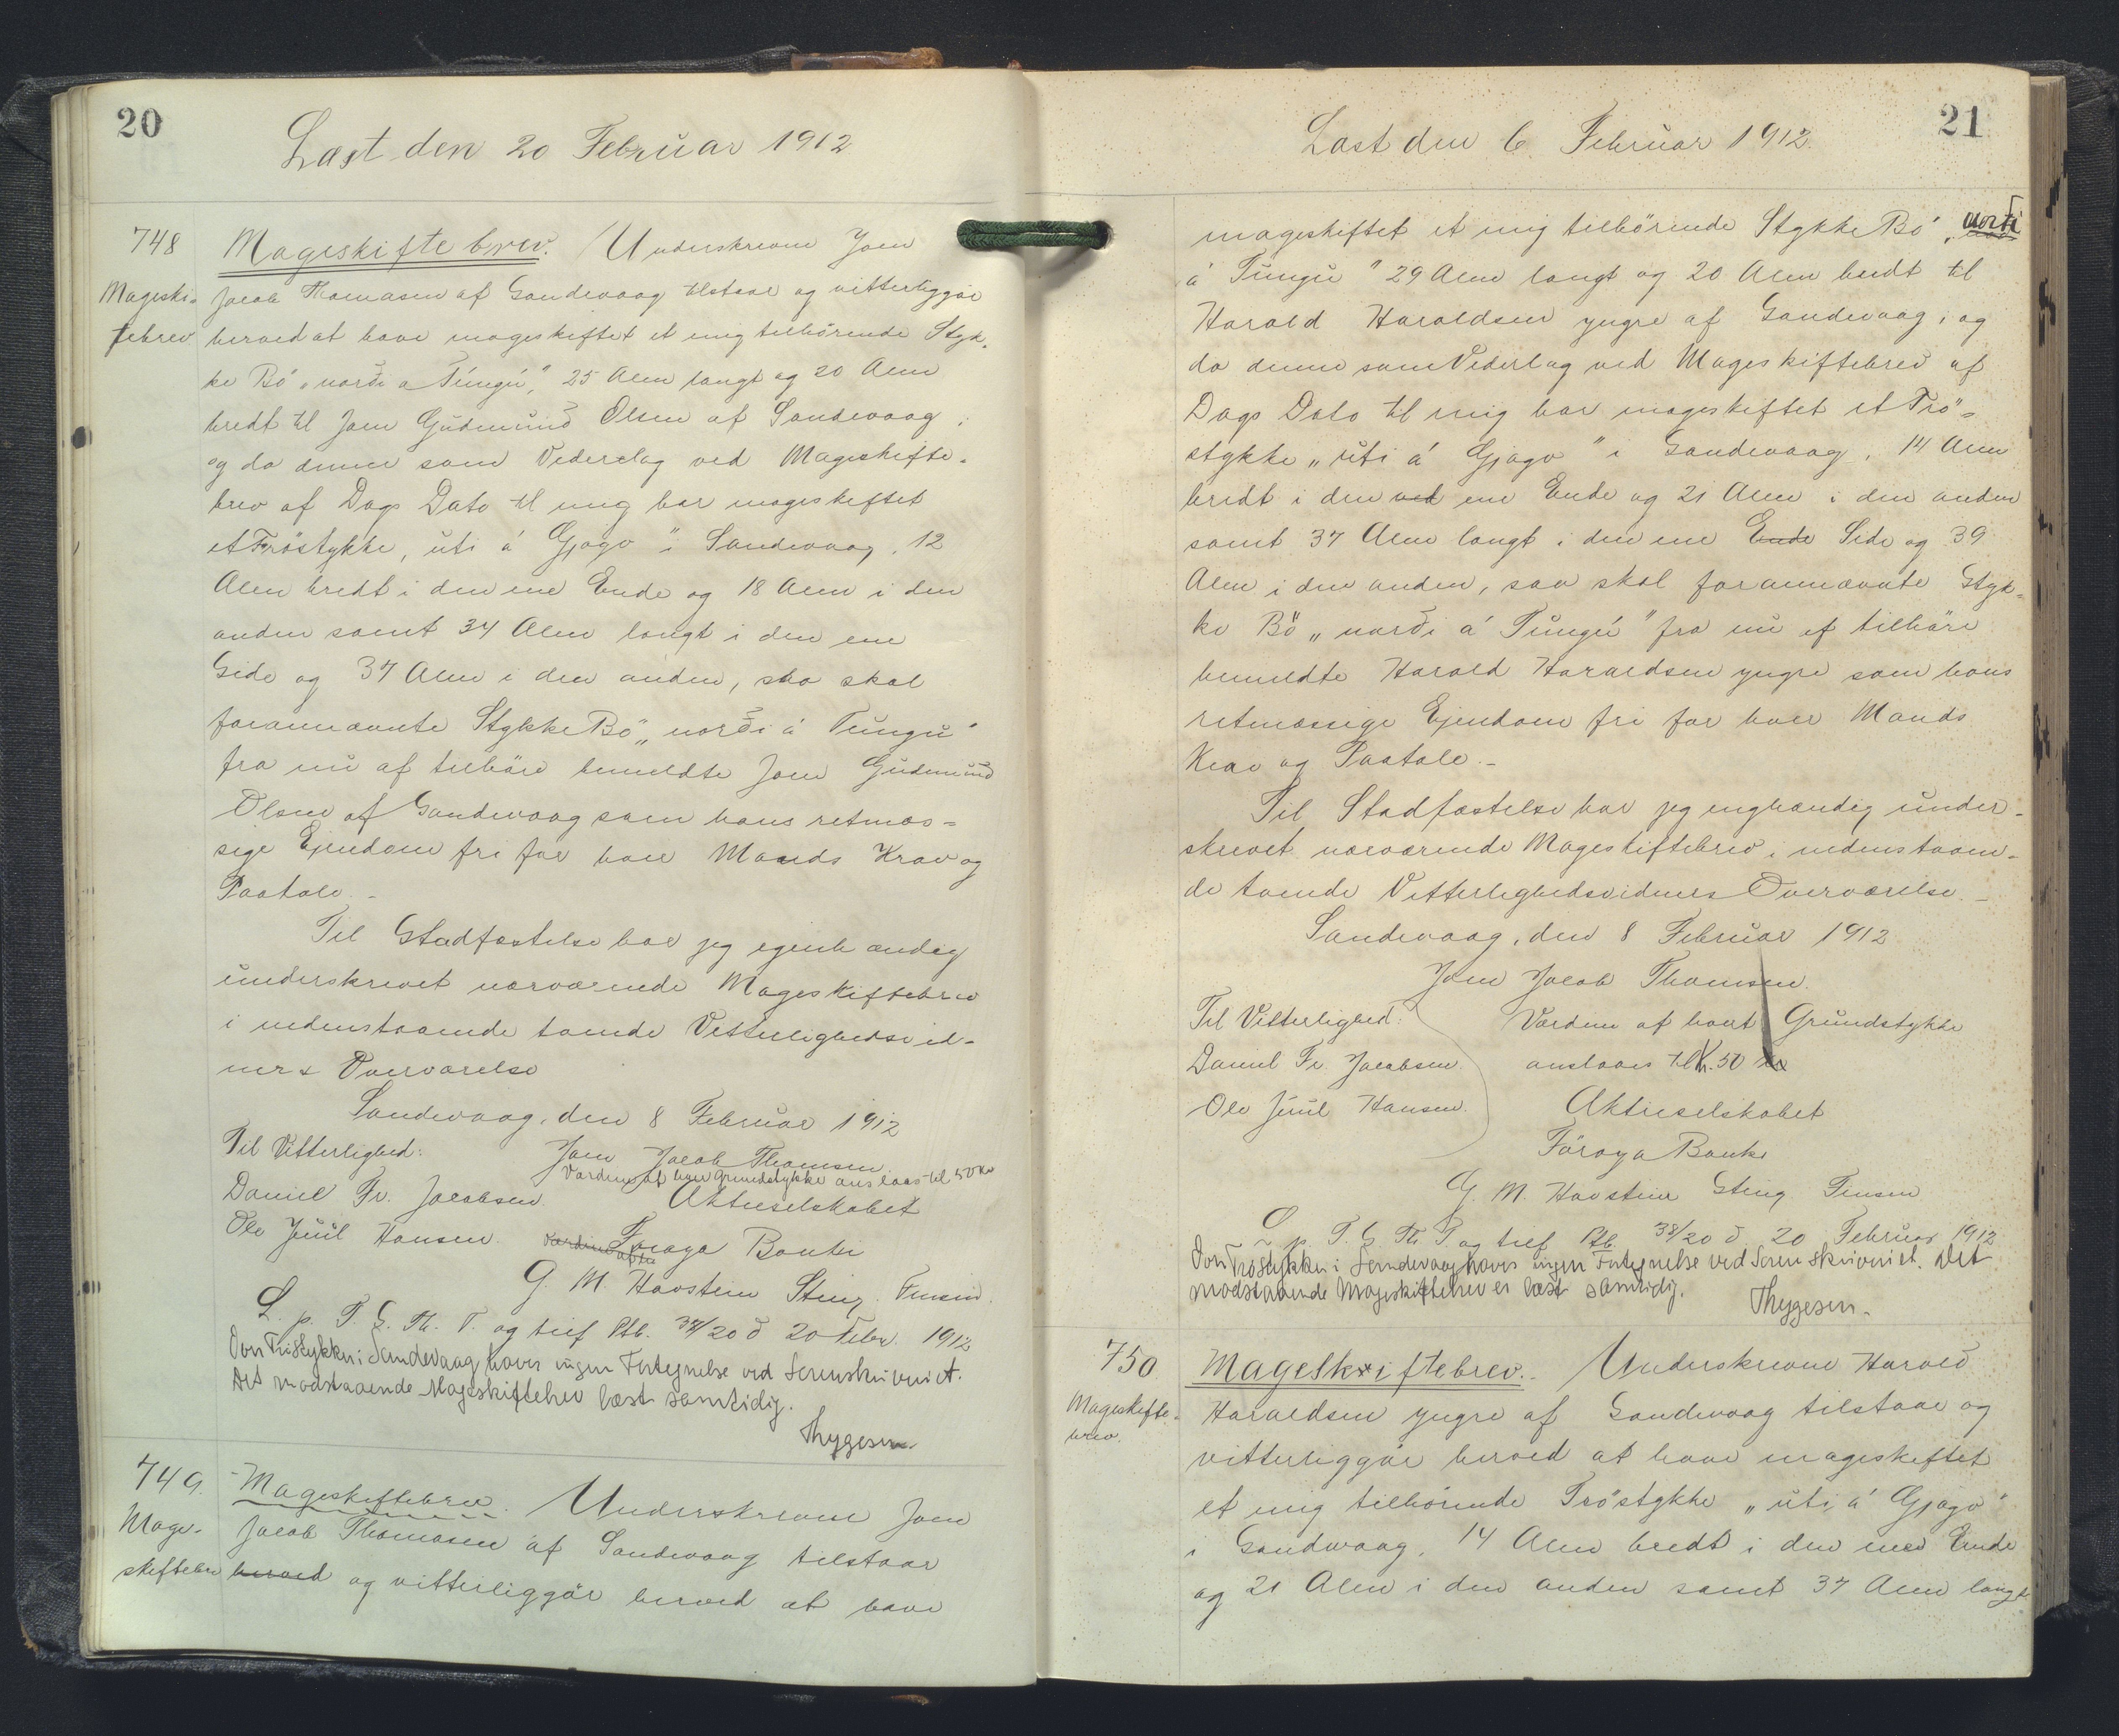 20
Læst den 20 Februar 1912
748
Mageskiftebrev. Underskrevne Joen
Mageski-
Jacob Thomasen af Sandevaag tilstaar og vitterliggör
ftebrev
herved at have mageskiftet et mig tilhörende Styk-
ke Bö „norði a Túngú", 25 Alen langt og 20 Alen
bredt til Joen Gudmund Olsen af Sandevaag,
og da denne som Vederlag ved Mageskifte-
brev af Dags Dato til mig har mageskiftet
et Tröstykke, uti á Gjogv" i Sandevaag, 12
Alen bredt i den ene Ende og 18 Alen i den
anden samt 34 Alen langt i den ene
Side og 37 Alen i den anden, saa skal
forannævnte Stykke Bö „norði á Tungu"
fra nu af tilhöre bemeldte Joen Gudmund
Olsen af Sandevaag som hans retmæs-
sige Ejendom fri for hver Mands Krav og
Paatale.-
Til Stadfæstelse har jeg egenhændig
underskrevet nærværende Mageskiftebrev
i nedenstaaende tvende Vitterlighedsvid-
ners Overværelse
Sandevaag, den 8 Februar 1912
Til Vitterlighed:
Joen Jacob Thomsen.
Værdien af hver Grundstykke anslaas til 50 Kr
Daniel Fr. Jacobsen
Aktieselskabet
Ole Juul Hansen.
Föroya Banki
G. M. Havsteen Steng. Jensen.
L. p. T. S. Th. T. og tilf Ptb. 38/20 d 20 Febr. 1912
Om Tröstykker i Sandevaag haves ingen Fortegnelse ved Sorenskriveriet.
Det modstaaende Mageskiftebrev læst samtidig.
Thygesen.
749.
Mageskiftebrev. Underskrevne Joen
Mage-
Jacob Thomasen af Sandevaag tilstaar
skiftebrev
herved og vitterliggör herved at have
21
Læst den 6 Februar 1912.
mageskiftet et mig tilhörende Stykke Bö „norði
á Tungu" 29 Alen langt og 20 Alen bredt til
Harald Haraldsen yngre af Sandevaag, og
da denne som Vederlag ved Mageskiftebrev af
Dags Dato til mig har mageskiftet et Trö-
stykke „uti á Gjogv" i Sandevaag, 14 Alen
bredt i den ved ene Ende og 21 Alen i den anden
samt 37 Alen langt i den ene Ende Side og 39
Alen i den anden, saa skal forannævnte Styk-
ke Bö „norði á Tungú" fra nu af tilhöre
bemeldte Harald Haraldsen yngre som hans
retmæssige Ejendom fri for hver Mands
Krav og Paatale.-
Til Stadfæstelse har jeg enghændig under-
skrevet nærværende Mageskiftebrev i nedenstaaen-
de tvende Vitterlighedsvidners Overværelse.-
Sandevaag, den 8 Februar 1912
Joen Jacob Thomsen.
Til Vitterlighed:
Værdien af hvert Grundstykke
Daniel Fr. Jacobsen.
anslaaes til Kr. 50 Kr
Ole Juul Hansen.
Aktieselskabet
Föroya Banki
G. M. Havsteen Steng Jensen
L p. T. S. Th. T og tilf Ptb. 38/20 d 20 Februar 1912
Om Tröstykker i Sandevaag haves ingen Fortegnelse ved Sorenskriveriet. Det
modstaaende Mageskiftebrev er læst samtidig.
Thygesen.
750
Mageskiftebrev.- Underskrevne Harald
Mageskifte-
Haraldsen yngre af Sandevaag tilstaar og
brev.
vitterliggör herved at have mageskiftet
et mig tilhörende Tröstykke „uti á Gjogv"
i Sandevaag, 14 Alen bredt i den ene Ende
og 21 Alen i den anden samt 37 Alen langt